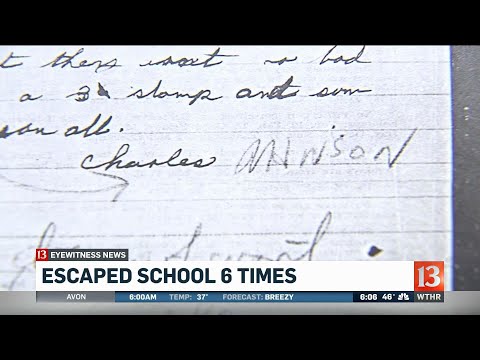 t thers wast so bad
a 3¢ stamp and som
on all.
Charles MANSON
13 EYEWITNESS NEWS
ESCAPED SCHOOL 6 TIMES
13
AVON 6:00AM TEMP: 37° FORECAST: BREEZY 6:06 46° WTHR